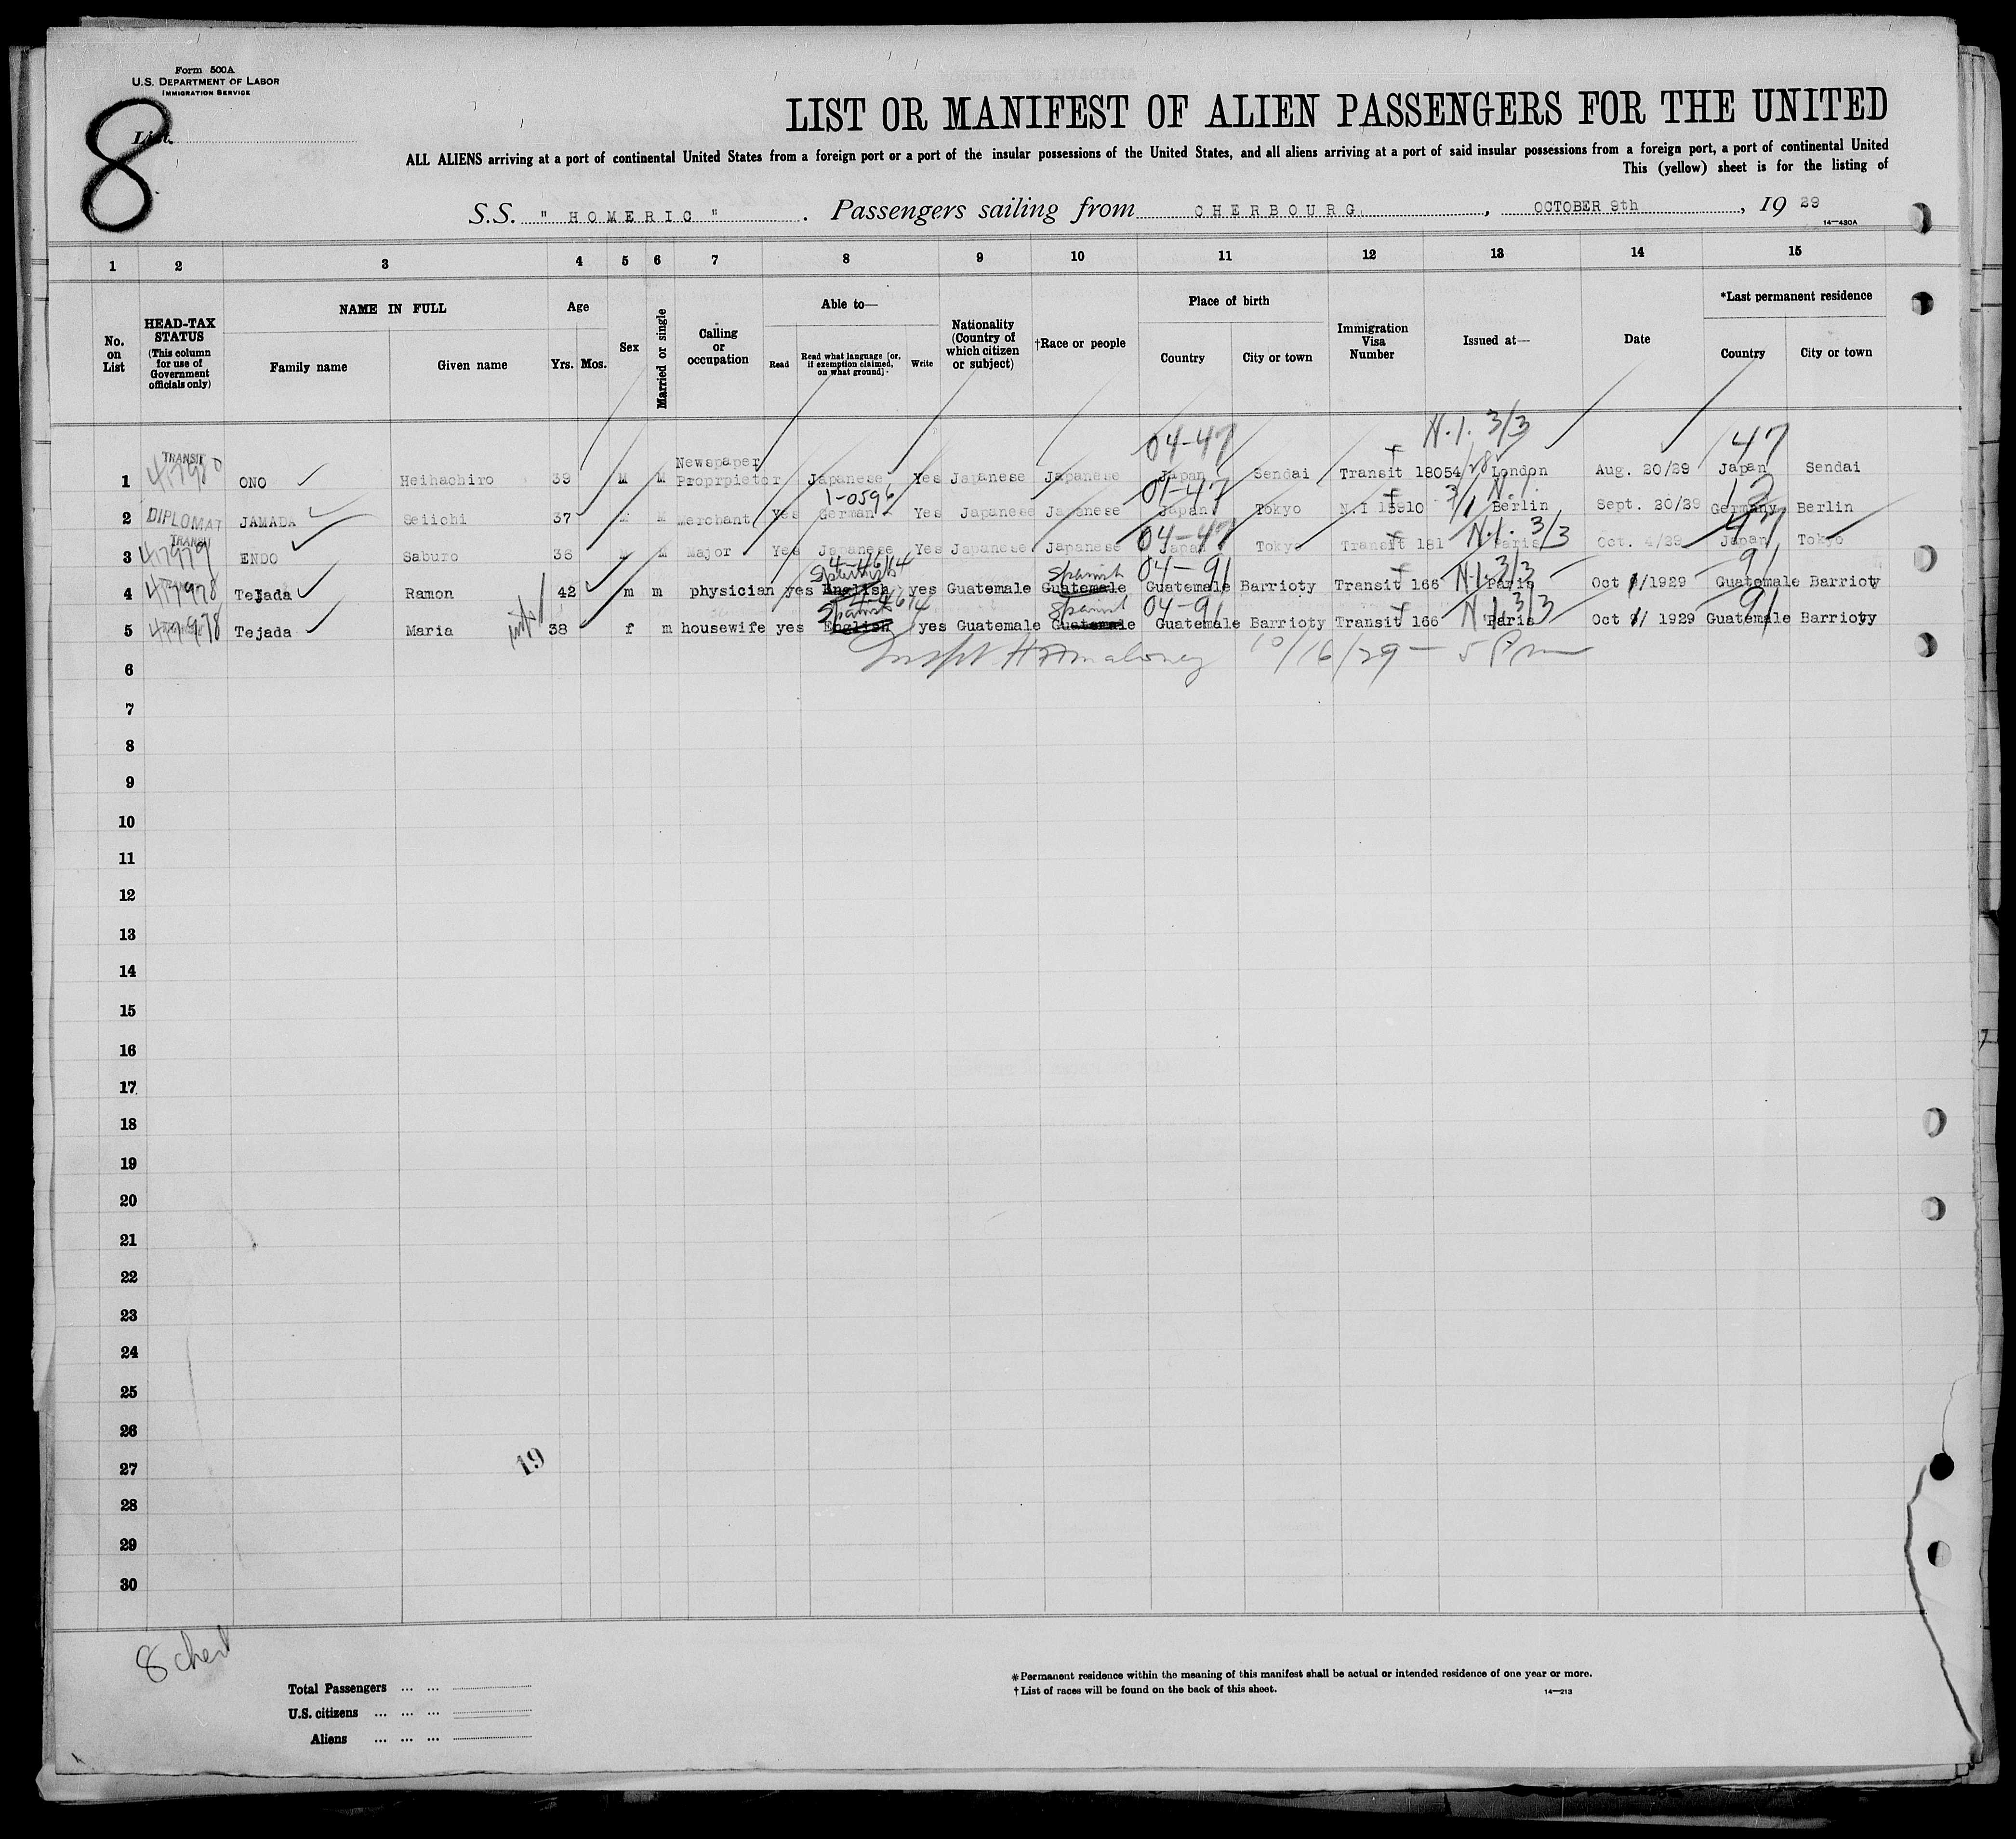 Form 500A
U.S. DEPARTMENT OF LABOR
IMMIGRATION SERVICE
8
List
LIST OR MANIFEST OF ALIEN PASSENGERS FOR THE UNITED
ALL ALIENS arriving at a port of continental United States from a foreign port or a port of the insular possessions of the United States, and all aliens arriving at a port of said insular possessions from a foreign port, a port of continental United
This (yellow) sheet is for the listing of
S.S. " HOMERIC ". Passengers sailing from CHERBOURG, OCTOBER 9th, 19 29
14—430A
1 2 3 4 5 6 7 8 9 10 11 12 13 14 15
No. on List
HEAD-TAX STATUS (This column for use of Government officials only)
NAME IN FULL
Family name
Given name
Age
Yrs. Mos.
Sex
Married or single
Calling or occupation
Able to—
Read
Read what language [or, if exemption claimed, on what ground]
Write
Nationality (Country of which citizen or subject)
†Race or people
Place of birth
Country
City or town
Immigration Visa Number
Issued at—
Date
*Last permanent residence
Country
City or town
04-47 N.I. 3/3 47
1 TRANSIT 47980 ONO Heihachiro 39 M M Newspaper Proprpietor Japanese Yes Japanese Japanese Japan Sendai Transit 18054/28 London Aug. 20/29 Japan Sendai
1-0596 01-47 3/1 N.I. 12
2 DIPLOMAT JAMADA Seiichi 37 M M Merchant Yes German Yes Japanese Japanese Japan Tokyo N.I Berlin Sept. 20/29 Germany Berlin
04-47 N.I. 3/3 47
3 TRANSIT 47979 ENDO Saburo 36 M M Major Yes Japanese Yes Japanese Japanese Japan Tokyo Transit 181 Paris Oct. 4/29 Japan Tokyo
4-4614 Spanish Spanish 04-91 N.I. 3/3 91
4 47978 Tejada Ramon 42 m m physician yes English yes Guatemale Guatemale Guatemale Barrioty Transit 166 Paris Oct /1929 Guatemale Barrioty
Spanish 4614 Spanish 04-91 N.I. 3/3 91
5 47978 Tejada Maria 38 f m housewife yes English yes Guatemale Guatemale Guatemale Barrioty Transit 166 Paris Oct / 1929 Guatemale Barrioty
6 Inspt H Maloney 10/16/29 — 5 Pm
7
8
9
10
11
12
13
14
15
16
17
18
19
20
21
22
23
24
25
26
27
19
28
29
30
8 cherb
Total Passengers
U.S. citizens
Aliens
*Permanent residence within the meaning of this manifest shall be actual or intended residence of one year or more.
†List of races will be found on the back of this sheet.
14—213